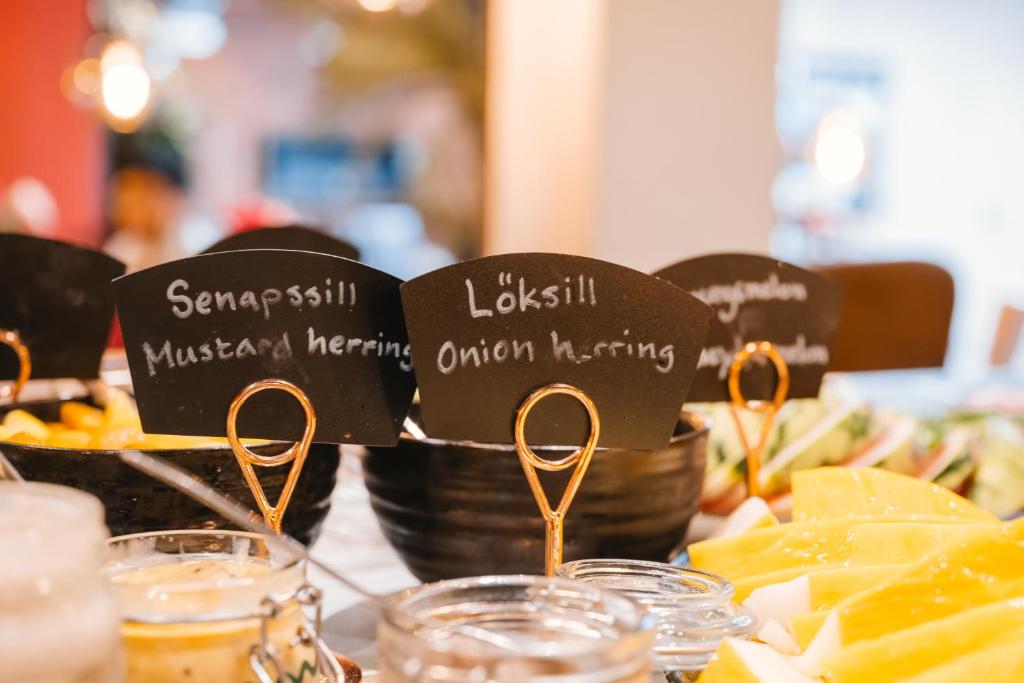 Senapssill
Mustard herring
Löksill
Onion herring